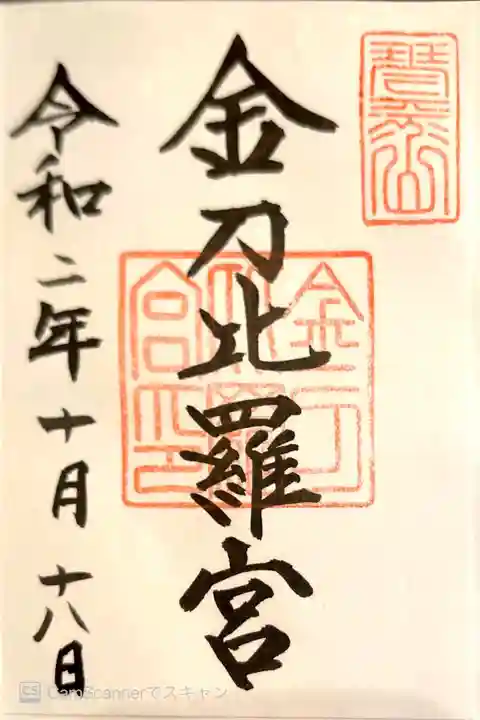 琴平山
金刀比羅宮
金刀比羅宮之印
令和二年十月十八日
CS CamScannerでスキャン